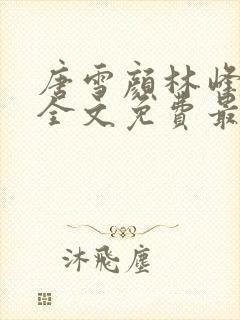 唐雪颜林峰
全文免费最
沐飛塵